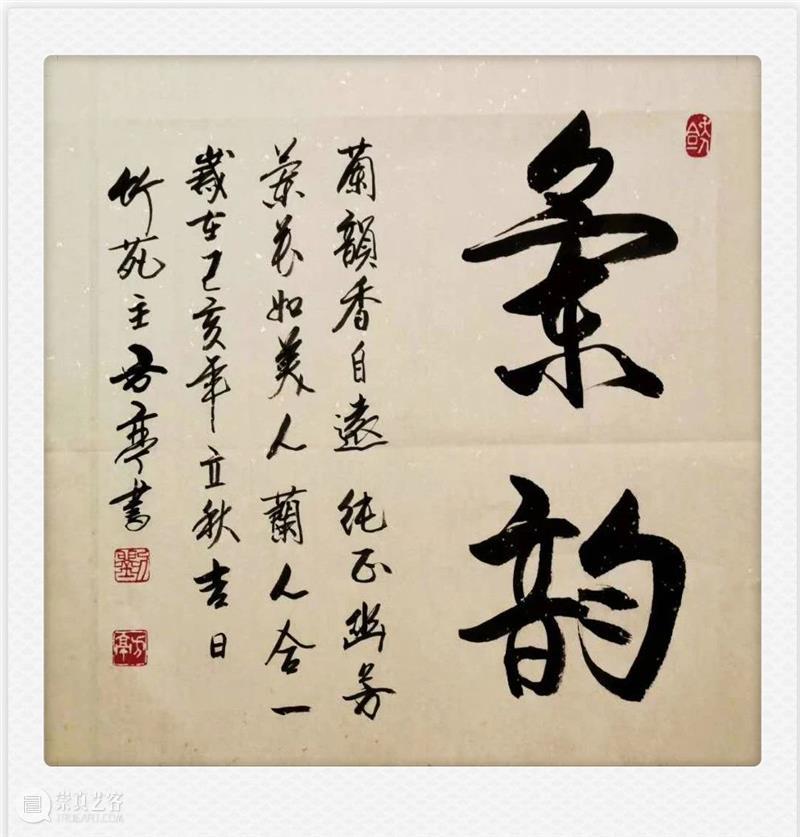 蘭韵
蘭韻香自遠 純正幽芳
蘭花如美人 蘭人合一
歲在己亥年立秋吉日
竹苑主方亭書
方亭
崇真艺客
TRUEART.COM